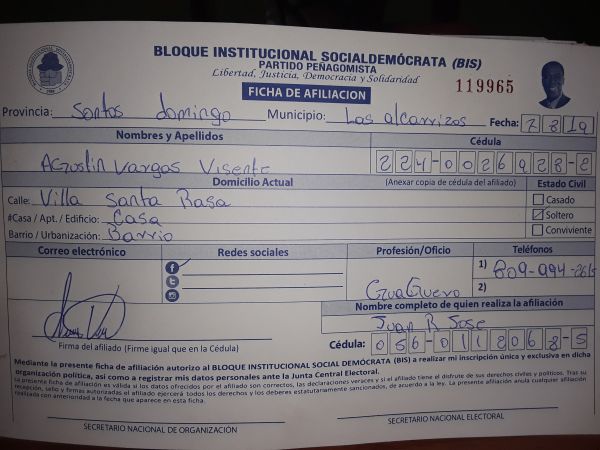 BLOQUE INSTITUCIONAL SOCIALDEMÓCRATA (BIS)
PARTIDO PEÑAGOMISTA
Libertad, Justicia, Democracia y Solidaridad
FICHA DE AFILIACION
119965
Provincia: Santos domingo Municipio: Los alcarrizos Fecha: 7 8 19
Nombres y Apellidos Cédula
Agustin Vargas Visente 224-0026928-2
Domicilio Actual (Anexar copia de cédula del afiliado) Estado Civil
Calle: Villa Santa Rasa Casado
#Casa / Apt. / Edificio: Casa Soltero
Barrio / Urbanización: Barrio Conviviente
Correo electrónico Redes sociales Profesión/Oficio Teléfonos
1) 809-994-2615
GuaGuero 2)
Nombre completo de quien realiza la afiliación
Juan R Jose
Firma del afiliado (Firme igual que en la Cédula) Cédula: 056-0118068-5
Mediante la presente ficha de afiliación autorizo al BLOQUE INSTITUCIONAL SOCIAL DEMÓCRATA (BIS) a realizar mi inscripción única y exclusiva en dicha
organización política, así como a registrar mis datos personales ante la Junta Central Electoral.
La presente ficha de afiliación es válida si los datos ofrecidos por el afiliado son correctos, las declaraciones veraces y si el afiliado tiene el disfrute de sus derechos civiles y políticos. Tras su
recepción, sello y firmas autorizadas el afiliado ejercerá todos los derechos y los deberes estatutariamente sancionados, de acuerdo a la ley. La presente afiliación anula cualquier afiliación
realizada con anterioridad a la fecha que aparece en esta ficha.
SECRETARIO NACIONAL DE ORGANIZACIÓN SECRETARIO NACIONAL ELECTORAL